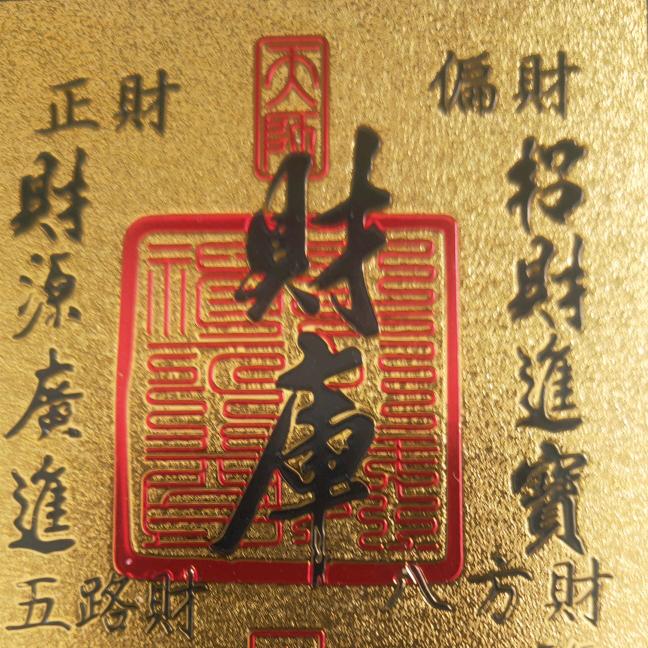 天師
偏財
正財
招財進寶
財庫
財源廣進
八方財
五路財